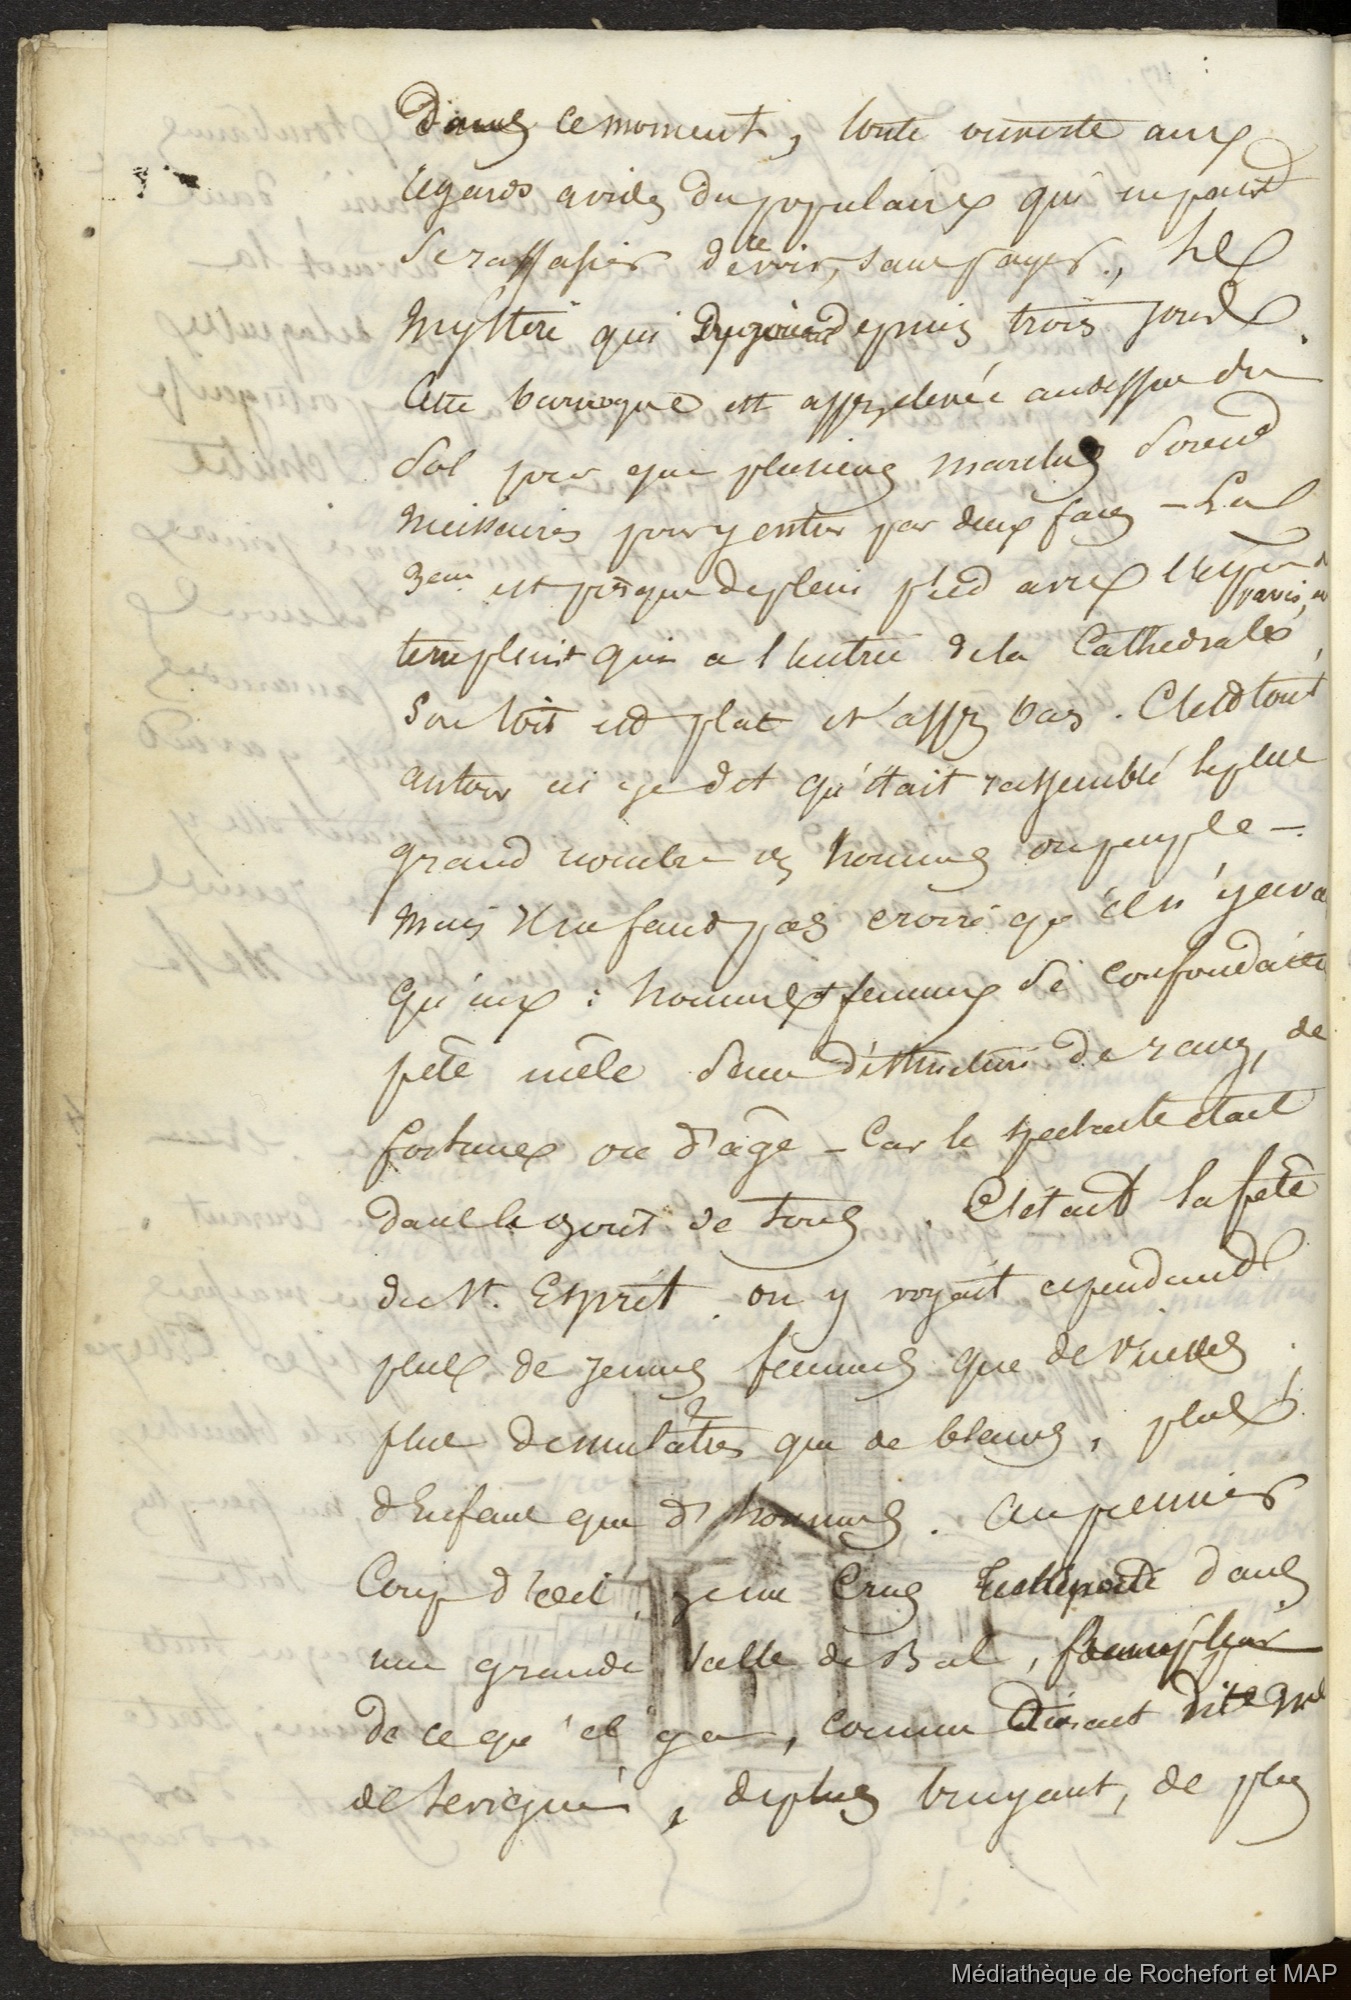 Dans ce moment, toute ouverte aux
regards avides du populaire qui ne peut
se rassasier de revoir, sans payer, le
mystère qui depuis trois jours.
Cette baraque est assez élevée audessus du
sol pour que plusieurs marches soient
nécessaires pour y entrer par deux faces – La
3eme est presque de plein pied avec
parvis, ou
terreplein qui a l'entrée de la Cathédrale,
son toit est plat et assez bas. C'est tout
autour ai-je dit qu'était rassemblé le plus
grand nombre des hommes du peuple –.
Mais il ne faut pas croire qu'il n'y eut là
qu'eux : hommes et femmes se confondaient
pêle mêle sans distinction de rang, de
fortune ou d'âge – Car le spectacle était
dans le goût de tous. C'était la fête
du St. Esprit. on y voyait cependant
plus de jeunes femmes que de vieilles.
plus de mulâtres que de blancs, plus
d'enfans que d'hommes. Au premier
Coup d'œil, je me crus transporté dans
une grande salle de Bal,
de ce qu'il y a, comme dirait
de Sévigné, de plus bruyant, de plus